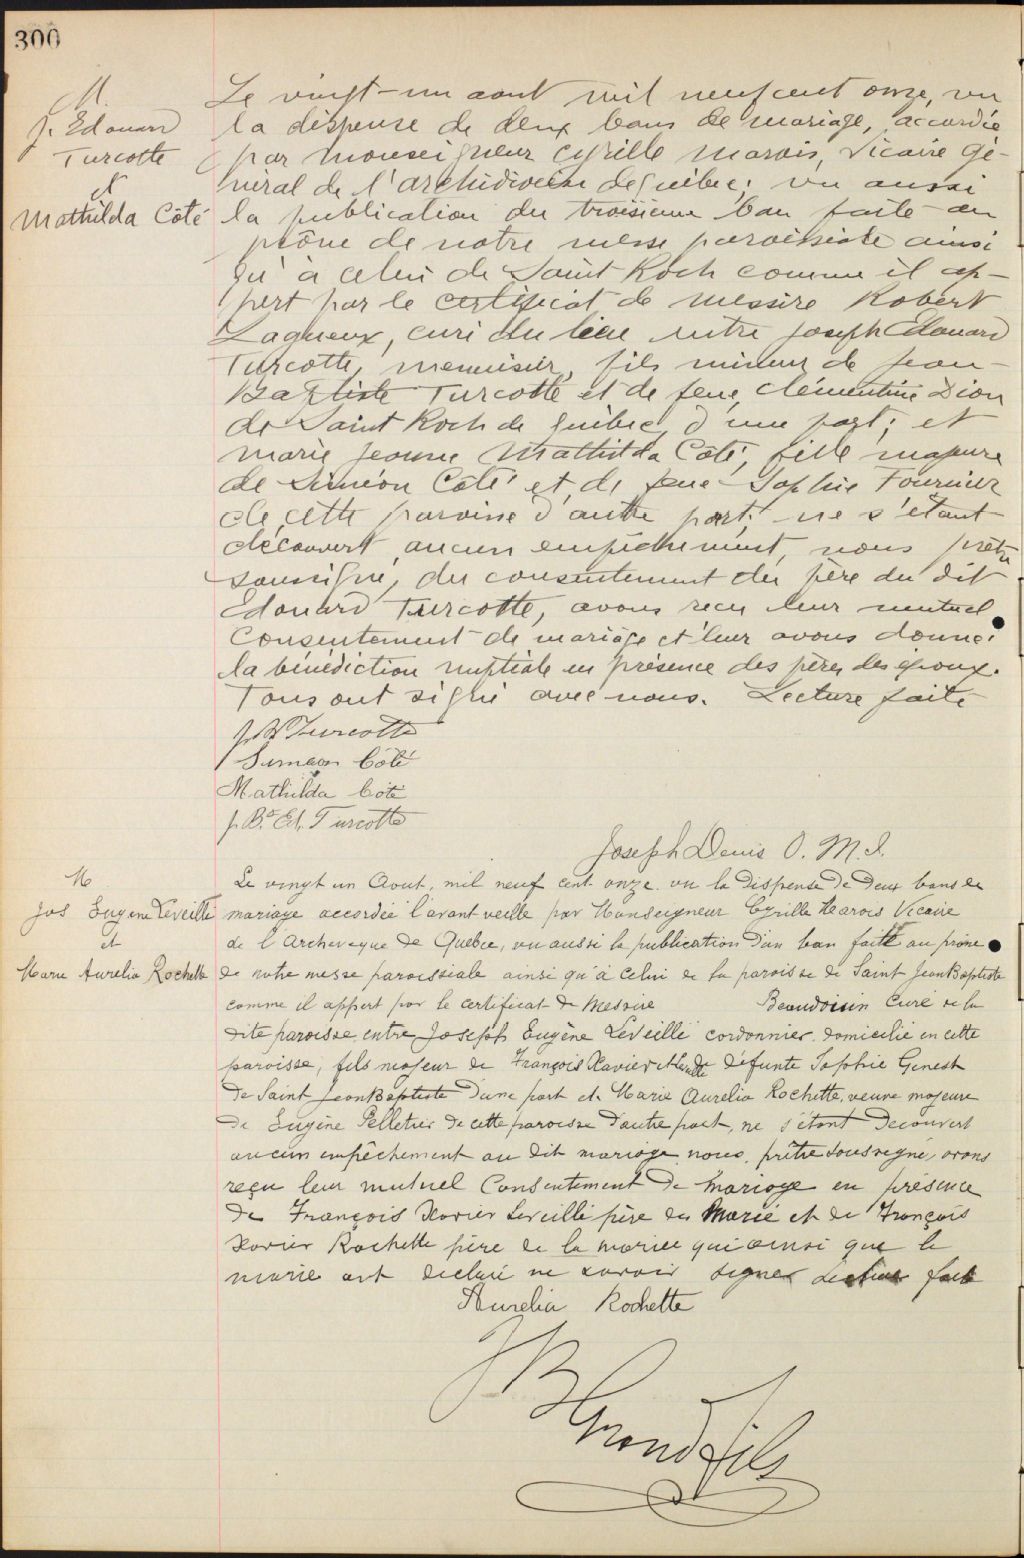 300
M.
J. Edouard
Turcotte
et
Mathilda Côté
Le vingt-un aout mil neuf cent onze, vu
la dispense de deux bans de mariage, accordée
par Monseigneur Cyrille Marois, Vicaire Gé-
néral de l'archidiocèse de Québec; vu aussi
la publication du troisième ban faite au
prône de notre messe paroissiale ainsi
qu'à celui de Saint Roch comme il ap-
pert par le certificat de messire Robert
Lagueux, curé du lieu entre Joseph Edouard
Turcotte, menuisier, fils mineur de Jean-
Baptiste Turcotte et de feue Clémentine Dion
de Saint Roch de Québec, d'une part; et
Marie Jeanne Mathilda Côté, fille majeure
de Siméon Côté et de feue Sophie Fournier
de cette paroisse d'autre part; ne s'étant
découvert aucun empêchement, nous prêtre
soussigné, du consentement du père du dit
Edouard Turcotte, avons reçu leur mutuel
consentement de mariage et leur avons donné
la bénédiction nuptiale en présence des pères des époux.
Tous ont signé avec nous. Lecture faite
J. B Turcotte
Simeon Côté
Mathilda Côté
J. Bte Ed. Turcotte
Joseph Denis O. M. I.
M
Jos Eugène Léveillé
et
Marie Aurelia Rochette
Le vingt un Aout, mil neuf cent onze vu la dispense de deux bans de
mariage accordée l'avant veille par Monseigneur Cyrille Marois Vicaire
de l'Archeveque de Quebec, vu aussi la publication d'un ban faite au prône
de notre messe paroissiale ainsi qu'à celui de la paroisse de Saint Jean Baptiste
comme il appert par le certificat de Messire Beaudoin Curé de la
dite paroisse entre Joseph Eugène Léveillé cordonnier domicilié en cette
paroisse, fils majeur de François Xavier et de défunte Sophie Genest
de Saint Jean Baptiste d'une part et Marie Aurelia Rochette, veuve majeure
de Eugène Pelletier de cette paroisse d'autre part, ne s'étant decouvert
aucun empêchement au dit mariage nous, prêtre soussigné, avons
reçu leur mutuel Consentement de mariage en présence
de François Xavier Leveillé père du Marié et de François
Xavier Rochette père de la mariée qui ainsi que le
marié ont declaré ne savoir signer Lecture faite
Aurelia Rochette
J B Grondfils